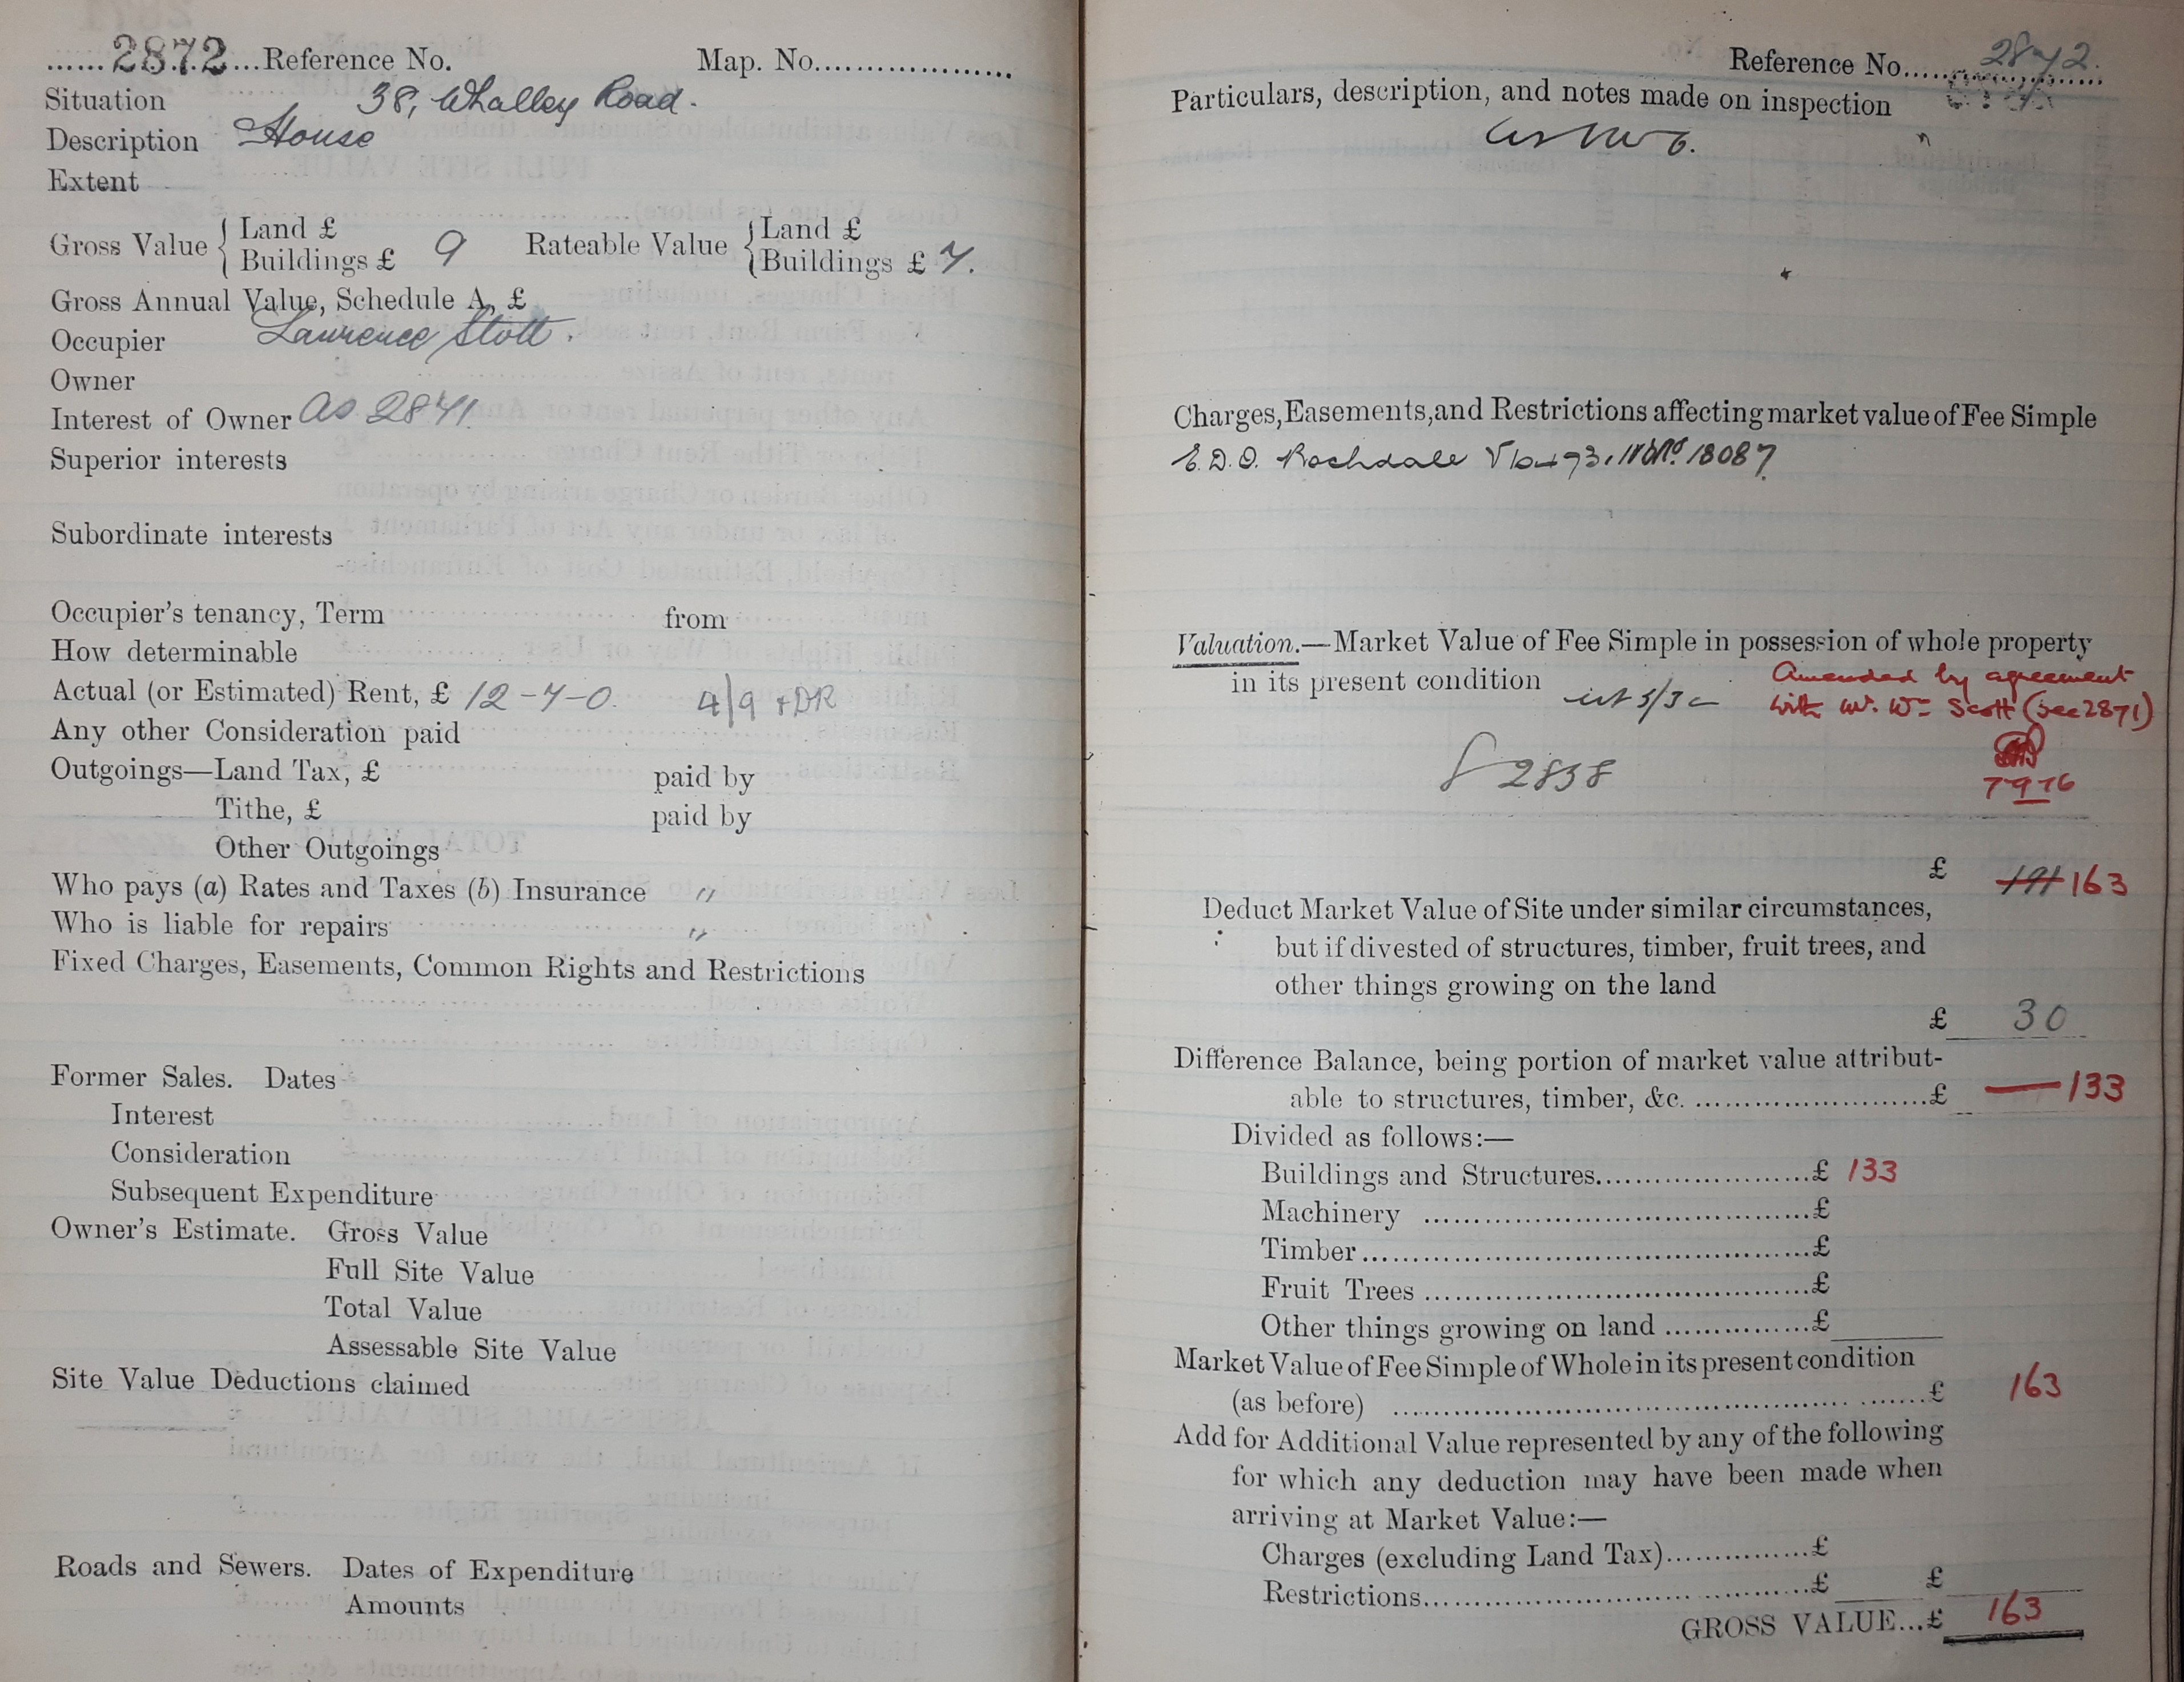 ......2872...Reference No. Map. No....................
Situation 38, Whalley Road.
Description House
Extent
Gross Value { Land £
Buildings £ 9
Rateable Value { Land £
Buildings £ 7.
Gross Annual Value, Schedule A, £
Occupier Lawrence Stott.
Owner
Interest of Owner As 2841
Superior interests
Subordinate interests
Occupier's tenancy, Term from
How determinable
Actual (or Estimated) Rent, £ 12-7-0. 4/9 + DR
Any other Consideration paid
Outgoings—Land Tax, £ paid by
Tithe, £ paid by
Other Outgoings
Who pays (a) Rates and Taxes (b) Insurance "
Who is liable for repairs "
Fixed Charges, Easements, Common Rights and Restrictions
Former Sales. Dates
Interest
Consideration
Subsequent Expenditure
Owner's Estimate. Gross Value
Full Site Value
Total Value
Assessable Site Value
Site Value Deductions claimed
Roads and Sewers. Dates of Expenditure
Amounts
Reference No. 2872.
Particulars, description, and notes made on inspection
Charges, Easements, and Restrictions affecting market value of Fee Simple
E.D.O. Rochdale 18087
Valuation.—Market Value of Fee Simple in possession of whole property
in its present condition
Amended by agreement
with Mr. Wm Scott (see 2871)
2838
7 9 16
£ 191 163
Deduct Market Value of Site under similar circumstances,
but if divested of structures, timber, fruit trees, and
other things growing on the land
£ 30
Difference Balance, being portion of market value attribut-
able to structures, timber, &c. ..........................£ 133
Divided as follows:—
Buildings and Structures........................£ 133
Machinery ...........................................£
Timber..................................................£
Fruit Trees ...........................................£
Other things growing on land ................£
Market Value of Fee Simple of Whole in its present condition
(as before) ........................................................£ 163
Add for Additional Value represented by any of the following
for which any deduction may have been made when
arriving at Market Value:—
Charges (excluding Land Tax)................£
Restrictions............................................£ £
GROSS VALUE...£ 163